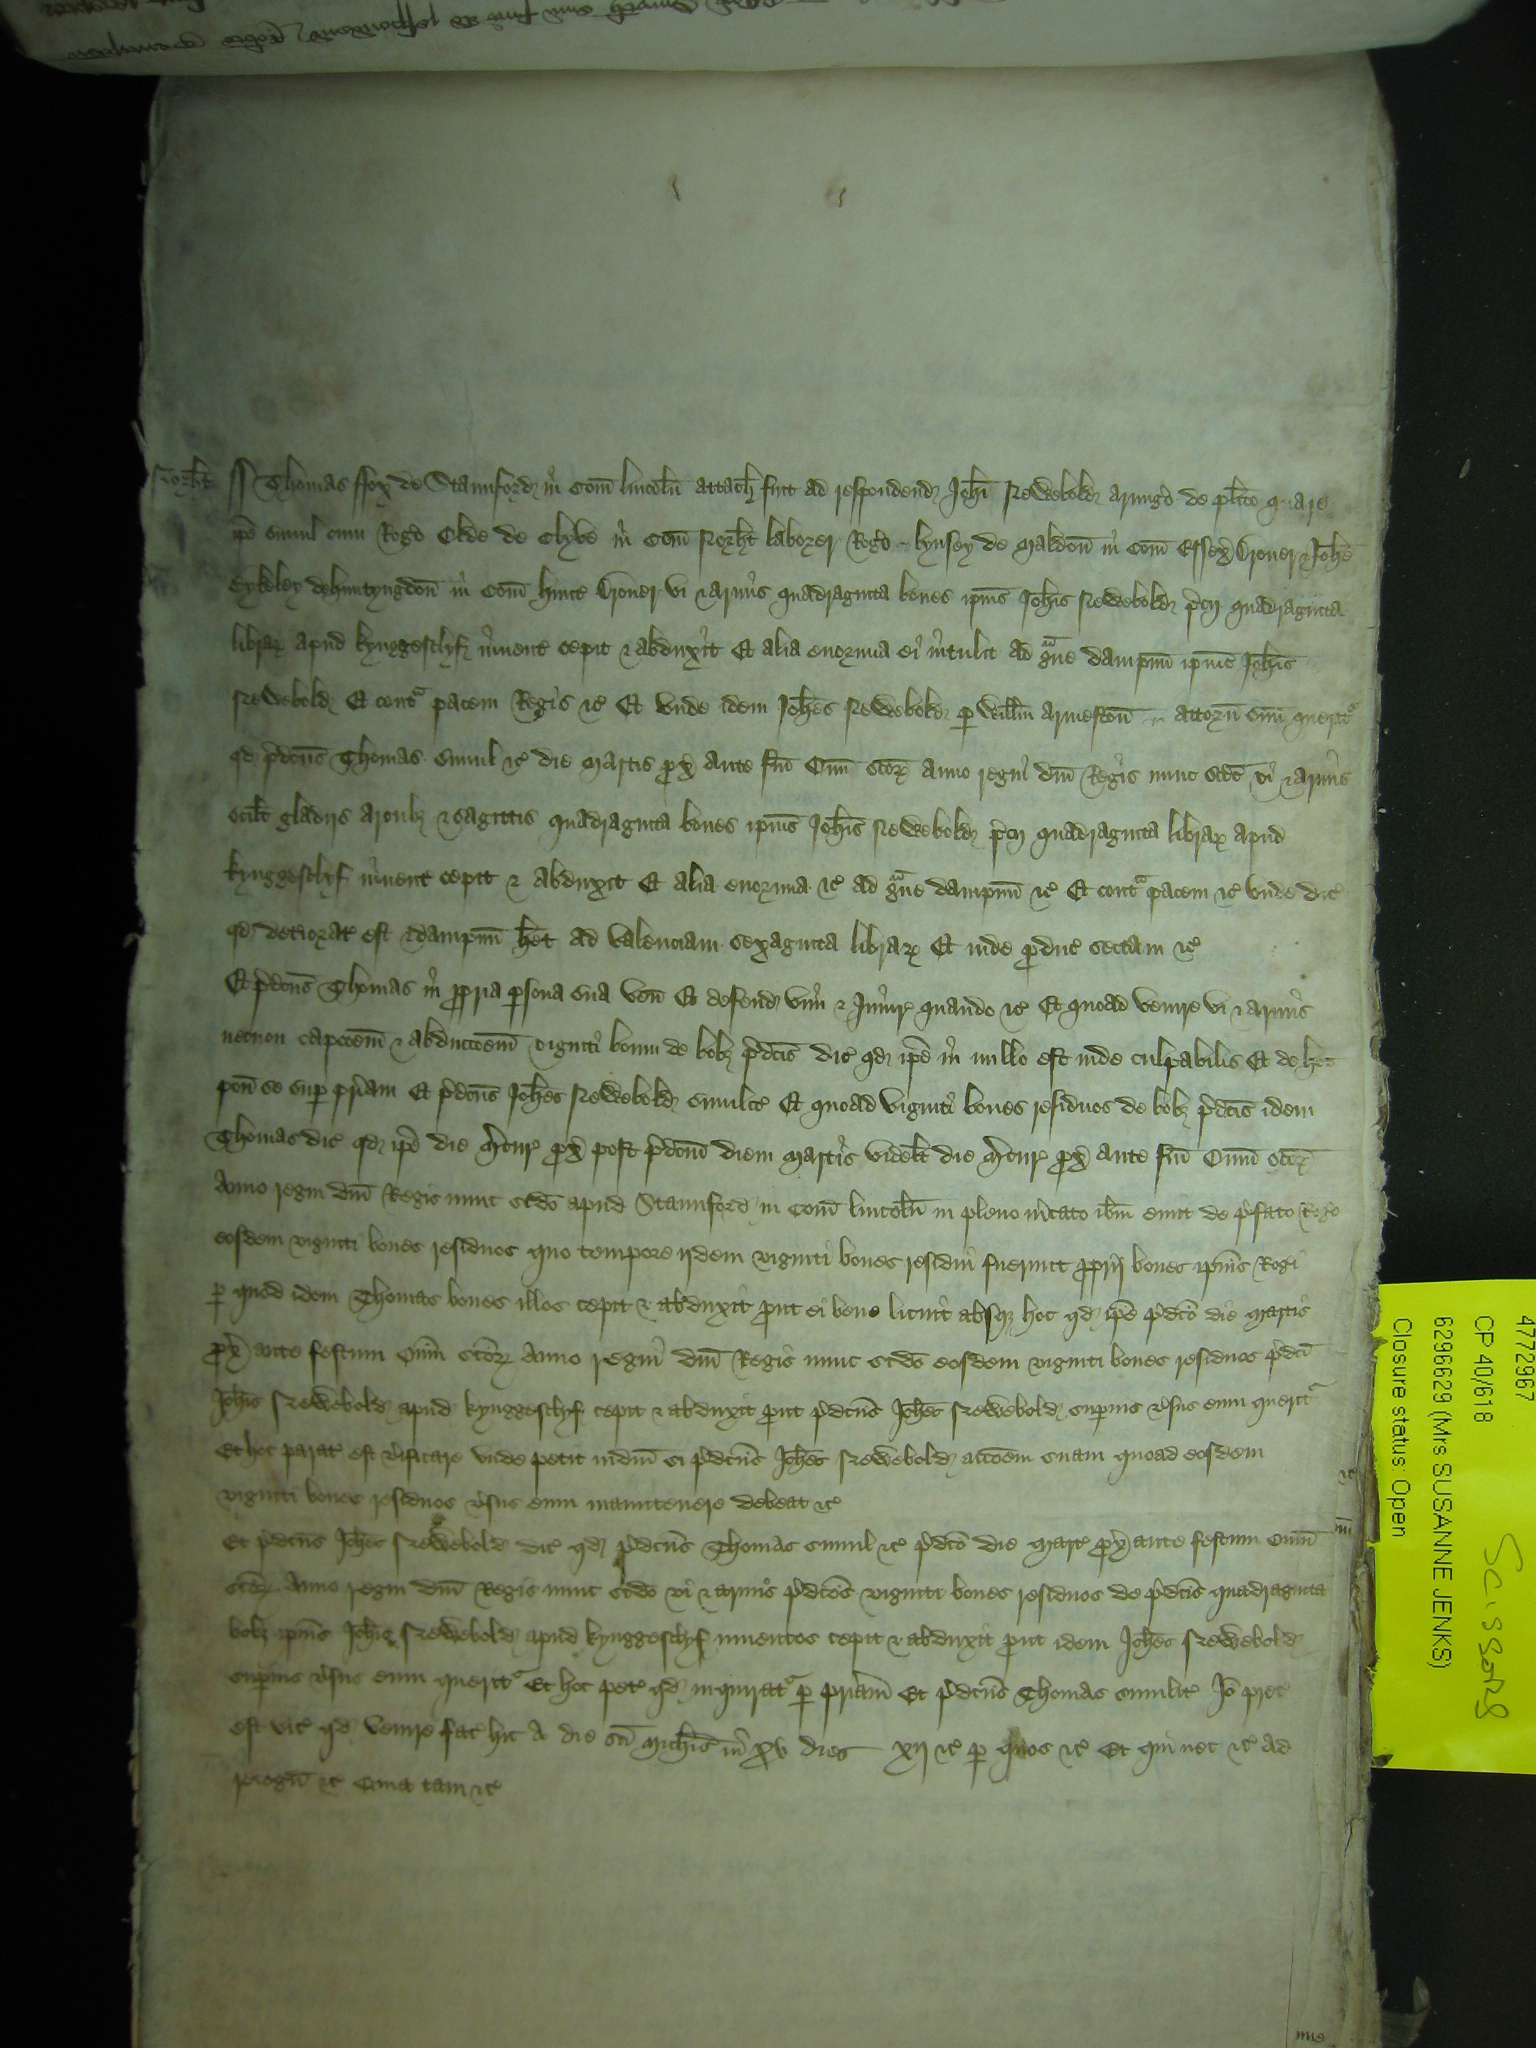 Norht ss Thomas ffox de Staunford in Com̄ lincoln̄ attach fuit ad respondend Joh̄i Newebold armig̃o de pl̃ito quare
ip̄e simul cum Rog̃o Clde de Clyve in Com̄ Norht laborer Rog̃o lynsey de Maldon̄ in Com̄ Essex Drouer & Joh̄e
Eykeley de huntyngdon̄ in Com̄ hunt Drouer vi & armis quadraginta boues ip̄ius Joh̄is Newebold p̃cij quadraginta
librar apud kynggesclyf inuent cepit & abduxit Et alia enormia ei intulit ad g̃ue dampnū ip̄ius Joh̄is
Newebold Et cont̃ pacem Regis &c̃ Et vnde idem Joh̄es Newebold p Will̄m Armeston̄ attorn̄ suū querit̃
qd p̃dc̄us Thomas simul &c̃ die martis prox ante fm̄ Om̄i sc̄or anno regni dn̄i Regis nunc sc̄do vi & armis
scil̄t gladijs arcubz & sagittis quadraginta boues ip̄ius Joh̄is Newebold p̃cij quadraginta librar apud
kynggesclyf inuent cepit & abduxit Et alia enormia &c̃ ad g̃ue dampnū &c̃ Et cont̃ pacem &c̃ vnde dic̃
qd deteriorat̃ est & dampnū h̄et ad valenciam sexaginta librar Et inde produc̃ sectam &c̃
Et p̃dc̄us Thomas in propria psona sua ven̄ Et defend vim & Iniur quando &c̃ Et quoad venire vi & armis
necnon capcōem̄ & abduccōem̄ viginti boum de bobz p̃dc̄is dic̃ qd ip̄e in nullo est inde culpabilis Et de hoc
pon̄ se sup pr̄iam Et p̃dc̄us Joh̄es Newebold similit̃ Et quoad viginti boues residuos de bobz p̃dc̄is idem
Thomas dic̃ qd ip̄e die M̃cur prox post p̃dc̄um diem martis videl̄t die M̃cur prox ante fm̄ Om̄iū sc̄or
Anno regni dn̄i Regis nunc sc̄do apud Staunford in Com̄ lincoln̄ in pleno m̃cato ib̄m emit de p̃fato Rog̃o
eosdem viginti boues residuos quo tempore ijdem viginti boues residui fuerunt proprij boues ip̄ius Rog̃i
p quod idem Thomas boues illos cepit & abduxit prout ei bene licuit absqz hoc qd ip̄e p̃dc̄o die martis
prox ante festum Om̄iū sc̄or Anno regni dn̄i Regis nunc sc̄do eosdem viginti boues residuos p̃dc̄i
Joh̄is Newebold apud kynggesclyf cepit & abduxit prout p̃dc̄us Joh̄es Newebold sup̃ius ṽsus eum querit̃
Et hoc parat̃ est ṽificare vnde petit iudm̄ si p̃dc̄us Joh̄es Newebold acc̄oem suam quoad eosdem
viginti boues residuos ṽsus eum manutenere debeat &c̃
Et p̃dc̄us Joh̄es Newebold dic̃ qd p̃dc̄us Thomas simul &c̃ p̃dc̄o die Mart̃ prox ante festum Om̄iū
sc̄or Anno regni dn̄i Regis nunc sc̄do vi & armis p̃dc̄os viginti boues residuos de p̃dc̄is quadraginta
bobz ip̄ius Joh̄is Newebold apud kynggesclyf inuentos cepit & abduxit prout idem Joh̄es Newebold
sup̃ius ṽsus eum querit̃ Et hoc pet̃ qd inquirat̃ p pr̄iam Et p̃dc̄us Thomas similit̃ Iō prec̃
est vic̃ qd venire fac̃ hic A die sc̄i Mich̄is in xv dies xij &c̃ p quos &c̃ Et qui nec &c̃ ad
recogn̄ &c̃ Quia tam &c̃
4772967
CP 40/618
6296629 (Mrs SUSANNE JENKS)
Closure status: Open